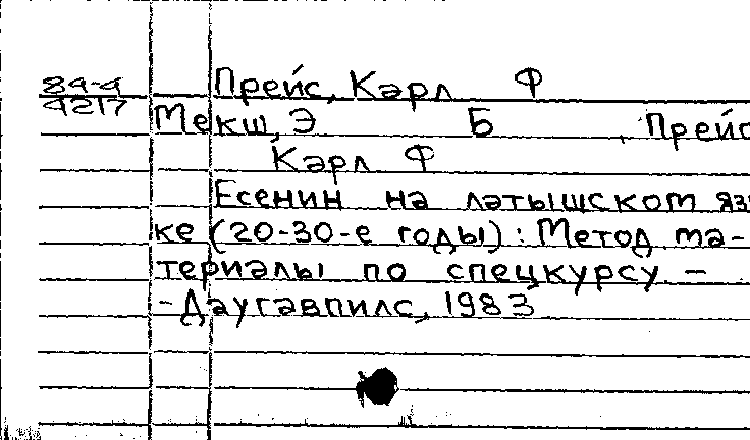 84-4
4217
Прейс, Карл Ф
Мекш, Э. Б , Прейс
Карл Ф
Есенин на латышском язы
ке (20-30-е годы) : Метод ма-
териалы по спецкурсу. -
- Даугавпилс, 1983